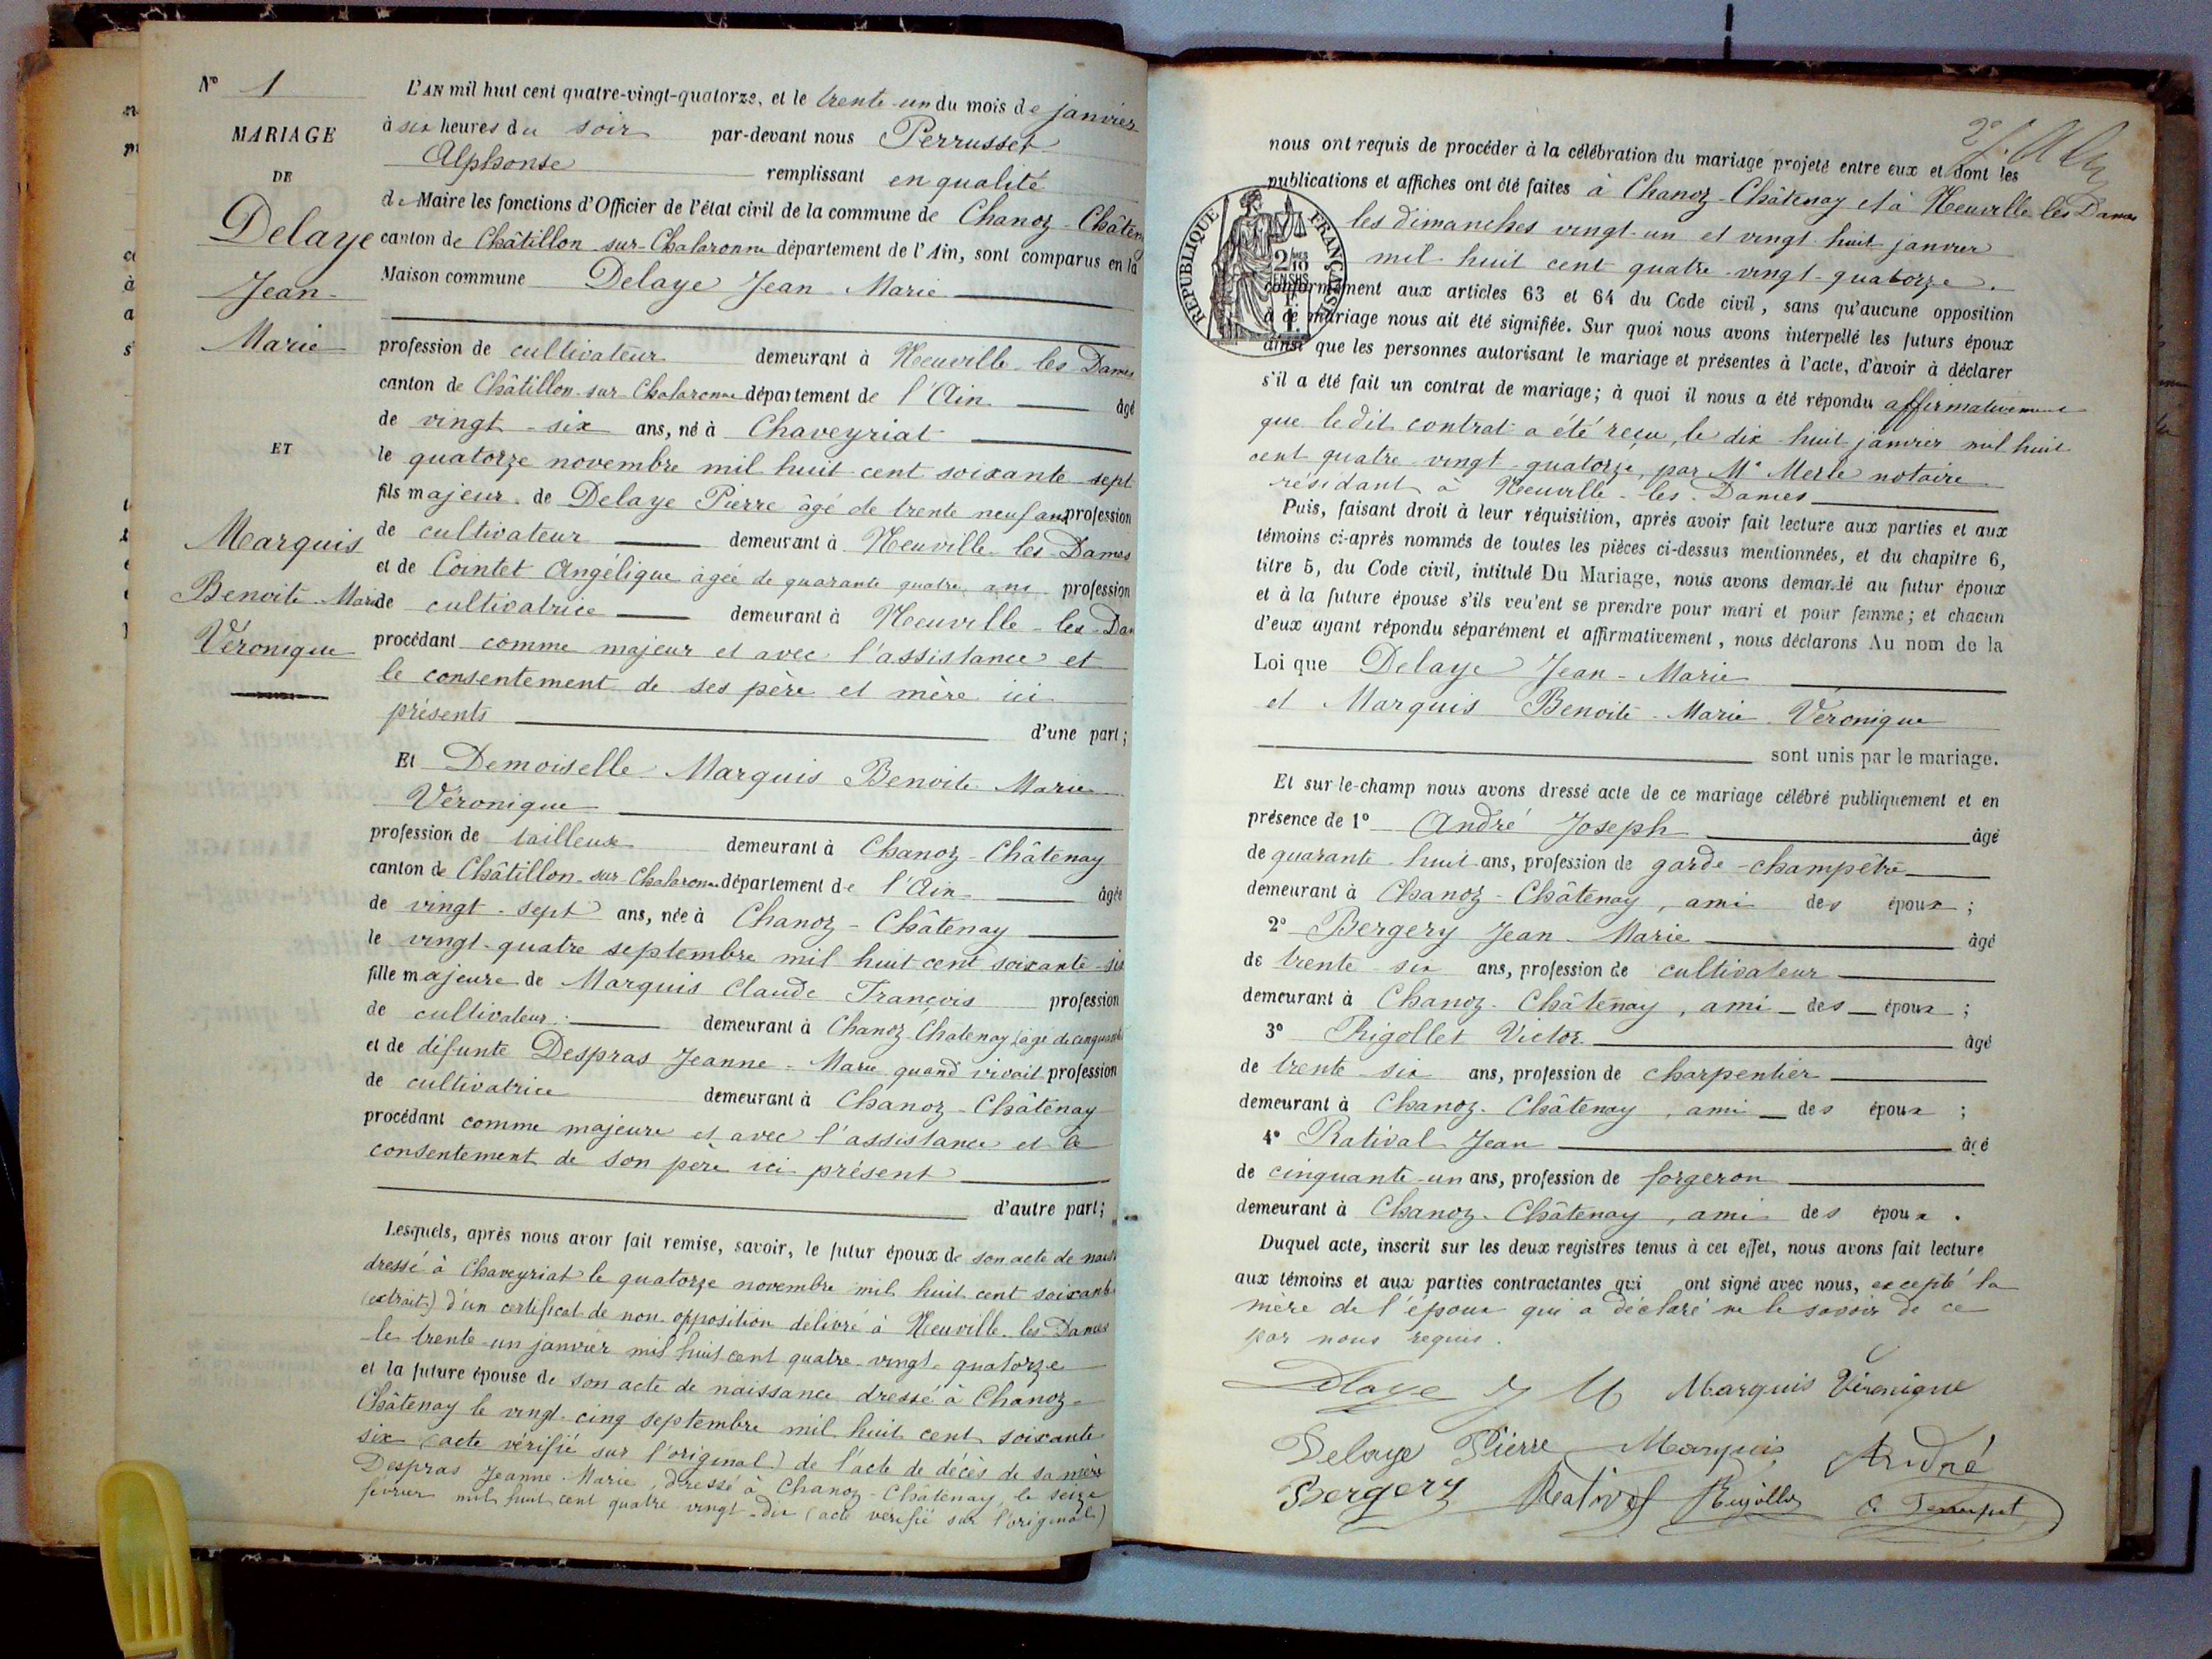 N° 1
MARIAGE
DE
Delaye
Jean-
Marie
ET
Marquis
Benoite-Marie
Véronique
L'AN mil huit cent quatre-vingt-quatorze, et le trente-un du mois de janvier
à six heures du soir par-devant nous Perrusset
Alphonse remplissant en qualité
de Maire les fonctions d'Officier de l'état civil de la commune de Chanoz-Châten
canton de Châtillon-sur-Chalaronne département de l'Ain, sont comparus en la
Maison commune Delaye Jean-Marie
profession de cultivateur demeurant à Neuville-les-Dames
canton de Châtillon-sur-Chalaronne département de l'Ain âgé
de vingt-six ans, né à Chaveyriat
le quatorze novembre mil huit cent soixante-sept
fils majeur de Delaye Pierre âgé de trente neuf ans profession
de cultivateur demeurant à Neuville-les-Dames
et de Cointet Angélique âgée de quarante quatre ans profession
de cultivatrice demeurant à Neuville-les-Da
procédant comme majeur et avec l'assistance et
le consentement de ses père et mère ici
présents d'une part;
Et Demoiselle Marquis Benoite Marie
Véronique
profession de tailleuse demeurant à Chanoz-Châtenay
canton de Châtillon-sur-Chalaronne département de l'Ain âgée
de vingt-sept ans, née à Chanoz-Châtenay
le vingt-quatre septembre mil huit cent soixante-six
fille majeure de Marquis Claude François profession
de cultivateur demeurant à Chanoz-Châtenay (âgé de cinquante
et de défunte Despras Jeanne-Marie quand vivait profession
de cultivatrice demeurant à Chanoz-Châtenay
procédant comme majeure et avec l'assistance et le
consentement de son père ici présent
d'autre part;
Lesquels, après nous avoir fait remise, savoir, le futur époux de son acte de naiss
dressé à Chaveyriat le quatorze novembre mil huit cent soixante
(extrait) d'un certificat de non-opposition délivré à Neuville-les-Dames
le trente-un janvier mil huit cent quatre-vingt-quatorze
et la future épouse de son acte de naissance dressé à Chanoz-
Châtenay le vingt-cinq septembre mil huit cent soixante
six (acte vérifié sur l'original) de l'acte de décès de sa mère
Despras Jeanne-Marie, dressé à Chanoz-Châtenay, le seize
février mil huit cent quatre vingt-dix (acte vérifié sur l'original)
nous ont requis de procéder à la célébration du mariage projeté entre eux et dont les
publications et affiches ont été faites à Chanoz-Châtenay et à Neuville-les-Dames
les dimanches vingt-un et vingt-huit janvier
mil huit cent quatre-vingt-quatorze.
REPUBLIQUE FRANÇAISE
2/10 EN SUS
1 F.
conformément aux articles 63 et 64 du Code civil, sans qu'aucune opposition
à ce mariage nous ait été signifiée. Sur quoi nous avons interpellé les futurs époux
ainsi que les personnes autorisant le mariage et présentes à l'acte, d'avoir à déclarer
s'il a été fait un contrat de mariage; à quoi il nous a été répondu affirmativement
que le dit contrat a été reçu, le dix-huit janvier mil huit
cent quatre-vingt-quatorze, par Me Merle notaire
résidant à Neuville-les-Dames
Puis, faisant droit à leur réquisition, après avoir fait lecture aux parties et aux
témoins ci-après nommés de toutes les pièces ci-dessus mentionnées, et du chapitre 6,
titre 5, du Code civil, intitulé Du Mariage, nous avons demandé au futur époux
et à la future épouse s'ils veulent se prendre pour mari et pour femme; et chacun
d'eux ayant répondu séparément et affirmativement, nous déclarons Au nom de la
Loi que Delaye Jean-Marie
et Marquis Benoite-Marie-Véronique
sont unis par le mariage.
Et sur-le-champ nous avons dressé acte de ce mariage célébré publiquement et en
présence de 1° André Joseph âgé
de quarante-huit ans, profession de garde-champêtre
demeurant à Chanoz-Châtenay, ami des époux;
2° Bergery Jean-Marie âgé
de trente-six ans, profession de cultivateur
demeurant à Chanoz-Châtenay, ami des époux;
3° Rigollet Victor âgé
de trente-six ans, profession de charpentier
demeurant à Chanoz-Châtenay, ami des époux;
4° Ratival Jean âgé
de cinquante-un ans, profession de forgeron
demeurant à Chanoz-Châtenay, ami des époux.
Duquel acte, inscrit sur les deux registres tenus à cet effet, nous avons fait lecture
aux témoins et aux parties contractantes qui ont signé avec nous, excepté la
mère de l'époux qui a déclaré ne le savoir de ce
par nous requis.
Delaye J M Marquis Véronique
Delaye Pierre Marquis André
Bergery Rativat Rigollet A Perrusset